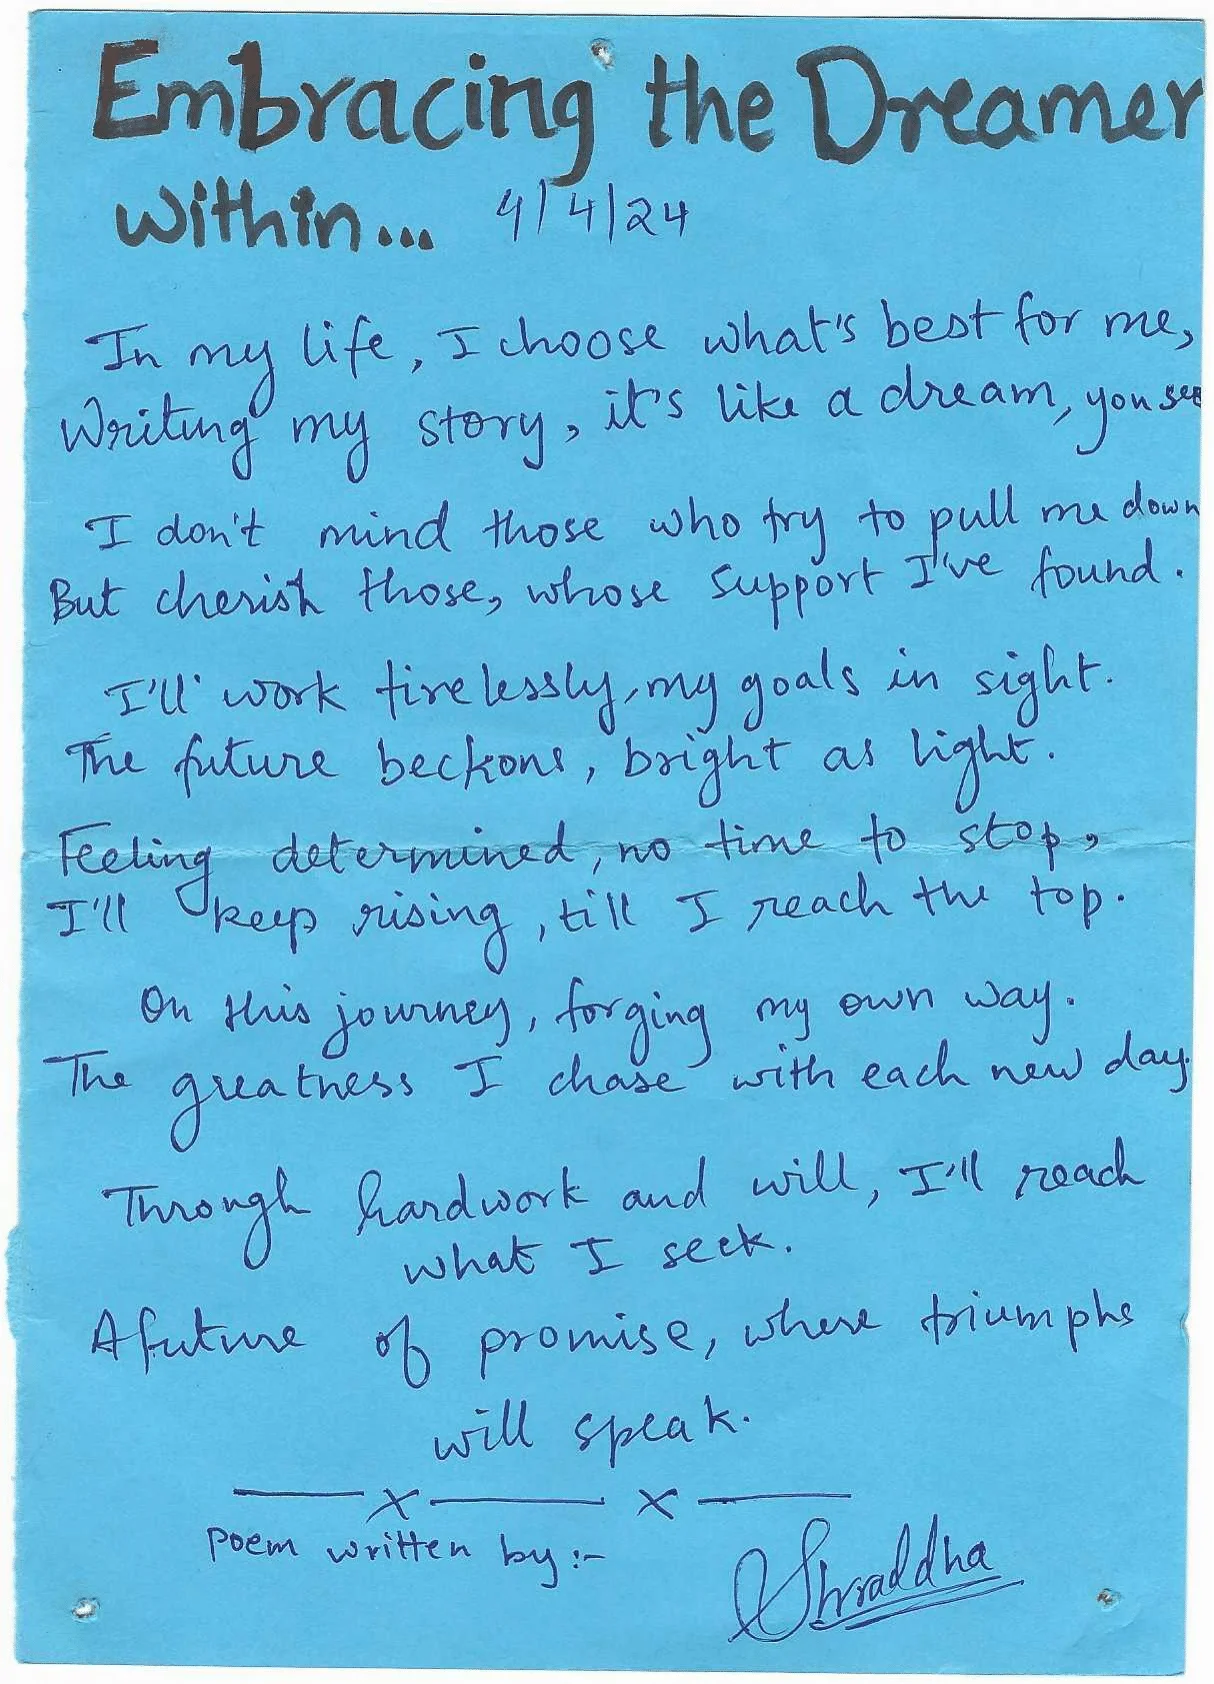 Embracing the Dreamer
within... 4/4/24
In my life, I choose what's best for me,
Writing my story, it's like a dream, you see
I don't mind those who try to pull me down
But cherish those, whose support I've found.
I'll work tirelessly, my goals in sight.
The future beckons, bright as light.
Feeling determined, no time to stop,
I'll keep rising, till I reach the top.
On this journey, forging my own way.
The greatness I chase with each new day.
Through hardwork and will, I'll reach
what I seek.
A future of promise, where triumphs
will speak.
—x—x—
Poem written by :-
Shraddha